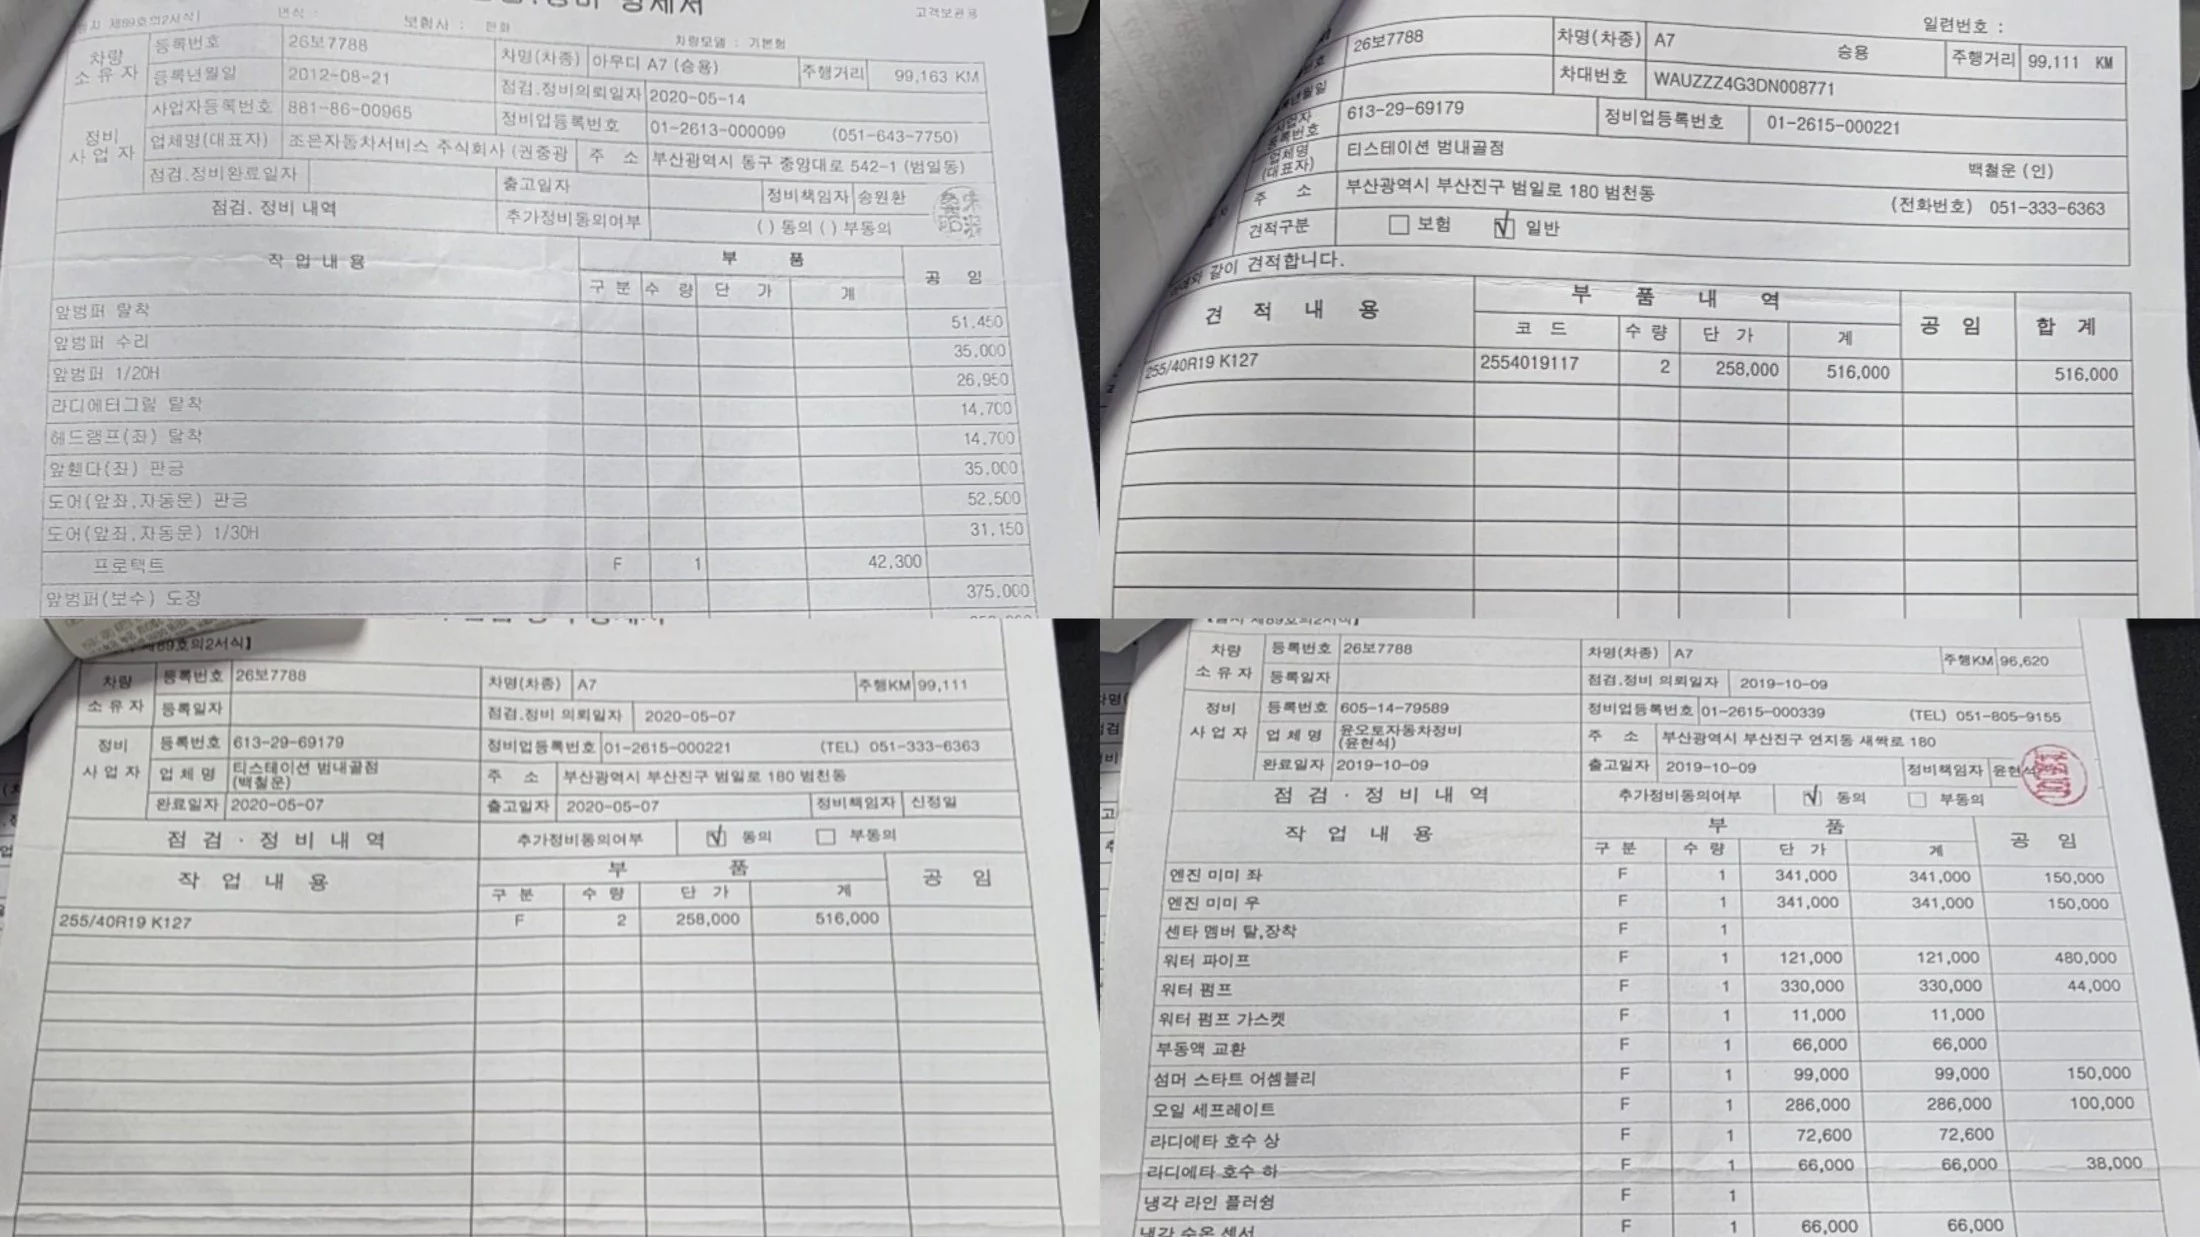 점검.정비 명세서
제89호의2서식]
년식 :
보험사 : 한화
차량모델 : 기본형
고객보관용
차량
소유자
등록번호 26보7788 차명(차종) 아우디 A7 (승용) 주행거리 99,163 KM
등록년월일 2012-08-21 점검.정비의뢰일자 2020-05-14
정비
사업자
사업자등록번호 881-86-00965 정비업등록번호 01-2613-000099 (051-643-7750)
업체명(대표자) 조은자동차서비스 주식회사 (권중광 주 소 부산광역시 동구 중앙대로 542-1 (범일동)
점검.정비완료일자 출고일자 정비책임자 송원환
점검. 정비 내역 추가정비동의여부 ( ) 동의 ( ) 부동의
작업내용 부 품 공 임
구분 수량 단가 계
앞범퍼 탈착 51,450
앞범퍼 수리 35,000
앞범퍼 1/20H 26,950
라디에터그릴 탈착 14,700
헤드램프(좌) 탈착 14,700
앞휀다(좌) 판금 35,000
도어(앞좌,자동문) 판금 52,500
도어(앞좌,자동문) 1/30H 31,150
프로택트 F 1 42,300
앞범퍼(보수) 도장 375,000
일련번호 :
26보7788 차명(차종) A7 승용 주행거리 99,111 KM
차대번호 WAUZZZ4G3DN008771
등록번호 613-29-69179 정비업등록번호 01-2615-000221
업체명
(대표자) 티스테이션 범내골점 백철운 (인)
주 소 부산광역시 부산진구 범일로 180 범천동 (전화번호) 051-333-6363
견적구분 보험 일반
같이 견적합니다.
견 적 내 용 부 품 내 역 공 임 합 계
코 드 수 량 단 가 계
255/40R19 K127 2554019117 2 258,000 516,000 516,000
제89호의2서식]
차량
소유자
등록번호 26보7788 차명(차종) A7 주행KM 99,111
등록일자 점검.정비 의뢰일자 2020-05-07
정비
사업자
등록번호 613-29-69179 정비업등록번호 01-2615-000221 (TEL) 051-333-6363
업체명 티스테이션 범내골점
(백철운) 주 소 부산광역시 부산진구 범일로 180 범천동
완료일자 2020-05-07 출고일자 2020-05-07 정비책임자 신정일
점 검 · 정 비 내 역 추가정비동의여부 동의 부동의
작 업 내 용 부 품 공 임
구 분 수 량 단 가 계
255/40R19 K127 F 2 258,000 516,000
[별지 제89호의2서식]
차량
소유자
등록번호 26보7788 차명(차종) A7 주행KM 96,620
등록일자 점검.정비 의뢰일자 2019-10-09
정비
사업자
등록번호 605-14-79589 정비업등록번호 01-2615-000339 (TEL) 051-805-9155
업체명 윤오토자동차정비
(윤현석) 주 소 부산광역시 부산진구 연지동 새싹로 180
완료일자 2019-10-09 출고일자 2019-10-09 정비책임자 윤현석
점 검 · 정 비 내 역 추가정비동의여부 동의 부동의
작 업 내 용 부 품 공 임
구 분 수 량 단 가 계
엔진 미미 좌 F 1 341,000 341,000 150,000
엔진 미미 우 F 1 341,000 341,000 150,000
센타 멤버 탈,장착 F 1
워터 파이프 F 1 121,000 121,000 480,000
워터 펌프 F 1 330,000 330,000 44,000
워터 펌프 가스켓 F 1 11,000 11,000
부동액 교환 F 1 66,000 66,000
섬머 스타트 어셈블리 F 1 99,000 99,000 150,000
오일 세프레이트 F 1 286,000 286,000 100,000
라디에타 호수 상 F 1 72,600 72,600
라디에타 호수 하 F 1 66,000 66,000 38,000
냉각 라인 플러슁 F 1
냉각 수온 센서 F 1 66,000 66,000